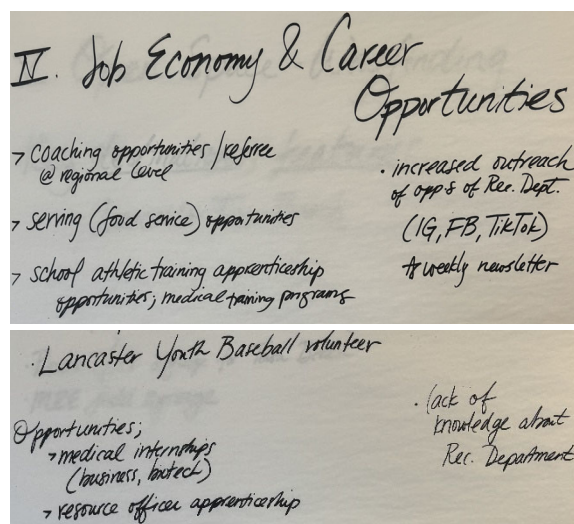 IV. Job Economy & Career
Opportunities
> Coaching opportunities / referree
@ regional level
> serving (food service) opportunities
> school athletic training apprenticeship
opportunities; medical training programs
· increased outreach
of opp's of Rec. Dept.
(IG, FB, TikTok)
☆ weekly newsletter
· Lancaster Youth Baseball volunteer
Opportunities;
> medical internships
(business, biotech)
> resource officer apprenticeship
· lack of
knowledge about
Rec. Department